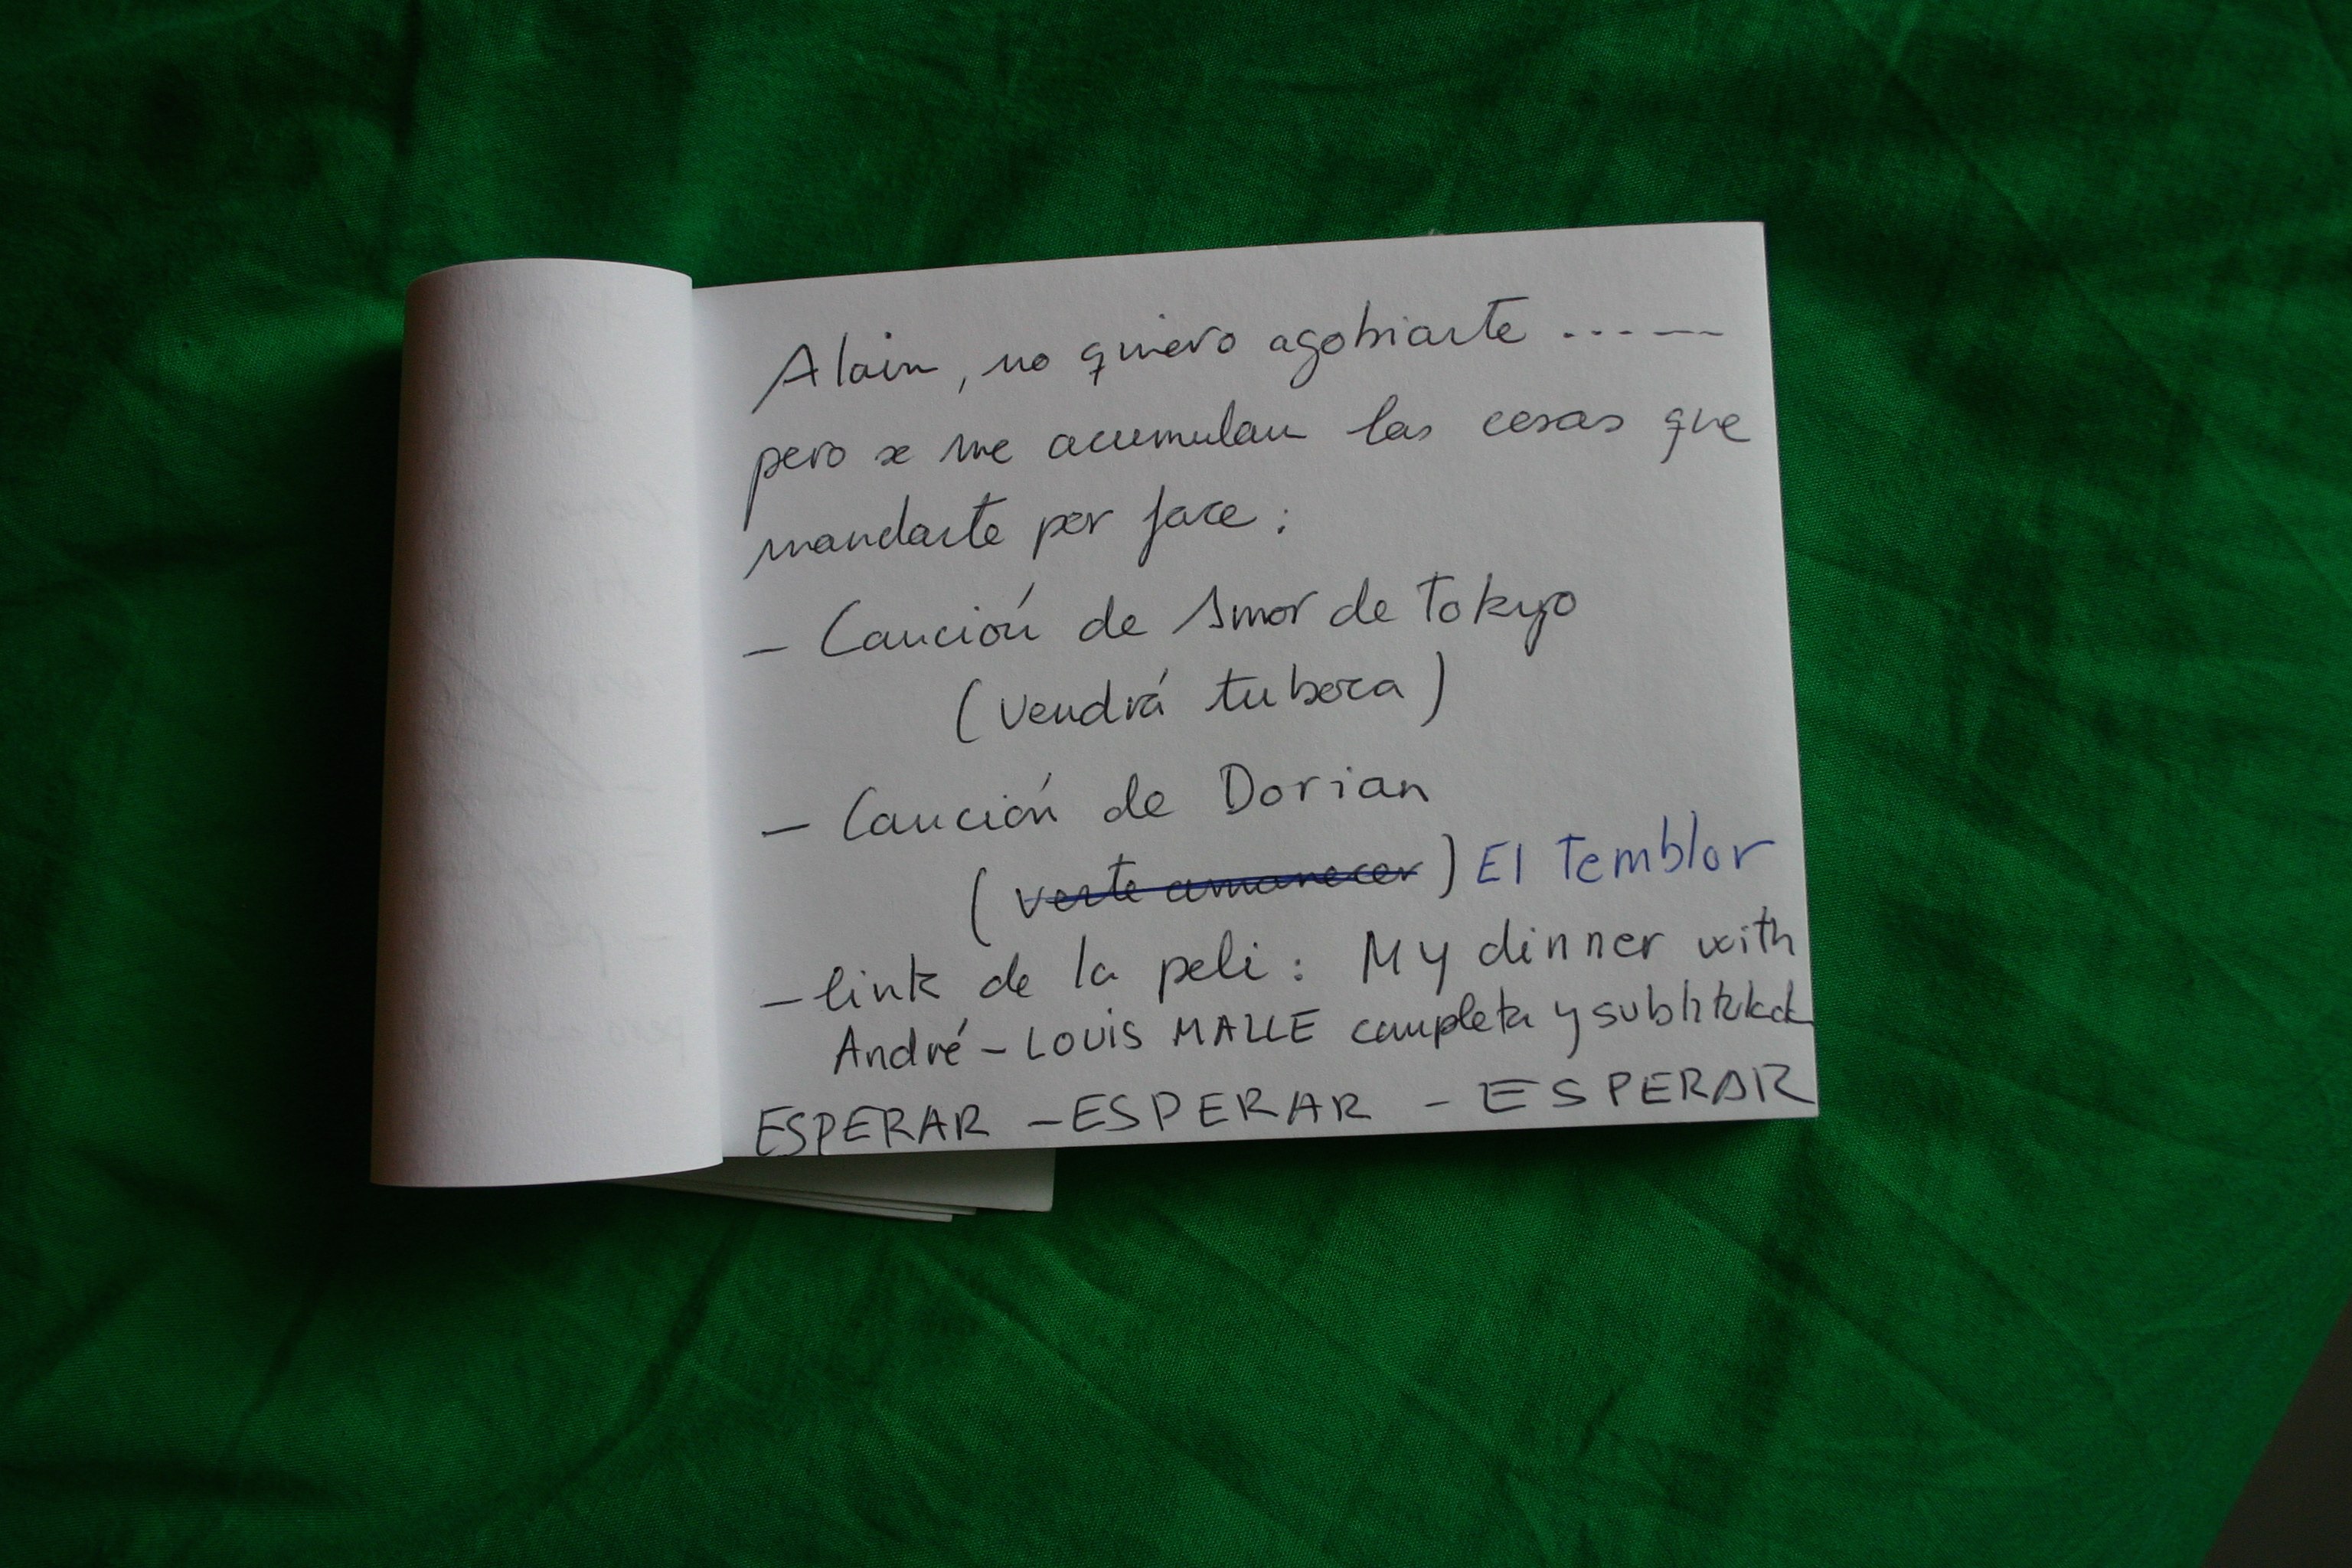 Alain, no quiero agobiarte ....——
pero se me acumulan las cosas que
mandarte por face:
— Canción de Amor de Tokyo
(Vendrá tu boca)
— Canción de Dorian
(verte amanecer) El Temblor
— link de la peli: My dinner with
André - LOUIS MALLE completa y subtitulada
ESPERAR - ESPERAR - ESPERAR